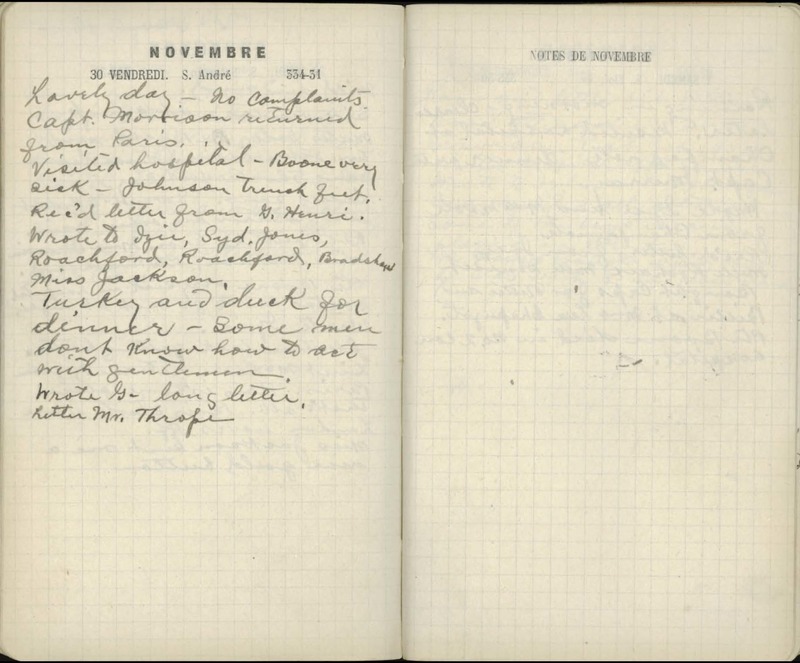 NOVEMBRE
30 VENDREDI. S. André 334-31
Lovely day – No complaints.
Capt. Morrison returned
from Paris.
Visited hospital – Boone very
sick – Johnson trench feet.
Rec'd letter from G. Henri.
Wrote to Izii, Syd. Jones,
Roachford, Roachford, Bradshaw
Miss Jackson.
Turkey and duck for
dinner – Some men
dont know how to act
with gentlemen.
Wrote G– long letter.
Letter Mr. Thrope
NOTES DE NOVEMBRE